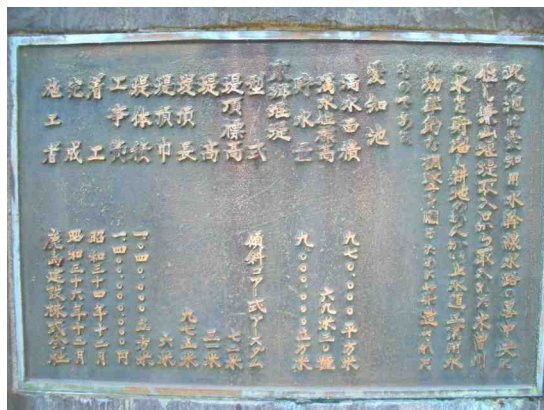 此の池は愛知用水幹線水路の略中央に
位し兼山堰堤取入口から取入れた木曽川
の水を貯溜し耕地のかんがい上水道工業用水
の効率的な調整を図るために築造された
ものである
愛知池
満水面積 九七〇〇〇〇平方米
満水位標高 六九米二〇糎
貯水量 九〇〇〇〇〇〇立方米
東郷堰堤
型式 傾斜コア式アースダム
堤頂標高 七一米
堤高 三一米
堤頂長 九七五米
堤頂巾 六米
堤体積 一〇四〇〇〇〇立方米
工事費 一四〇〇〇〇〇〇〇〇円
着工 昭和三十四年十二月
完成 昭和三十六年十二月
施工者 鹿島建設株式会社